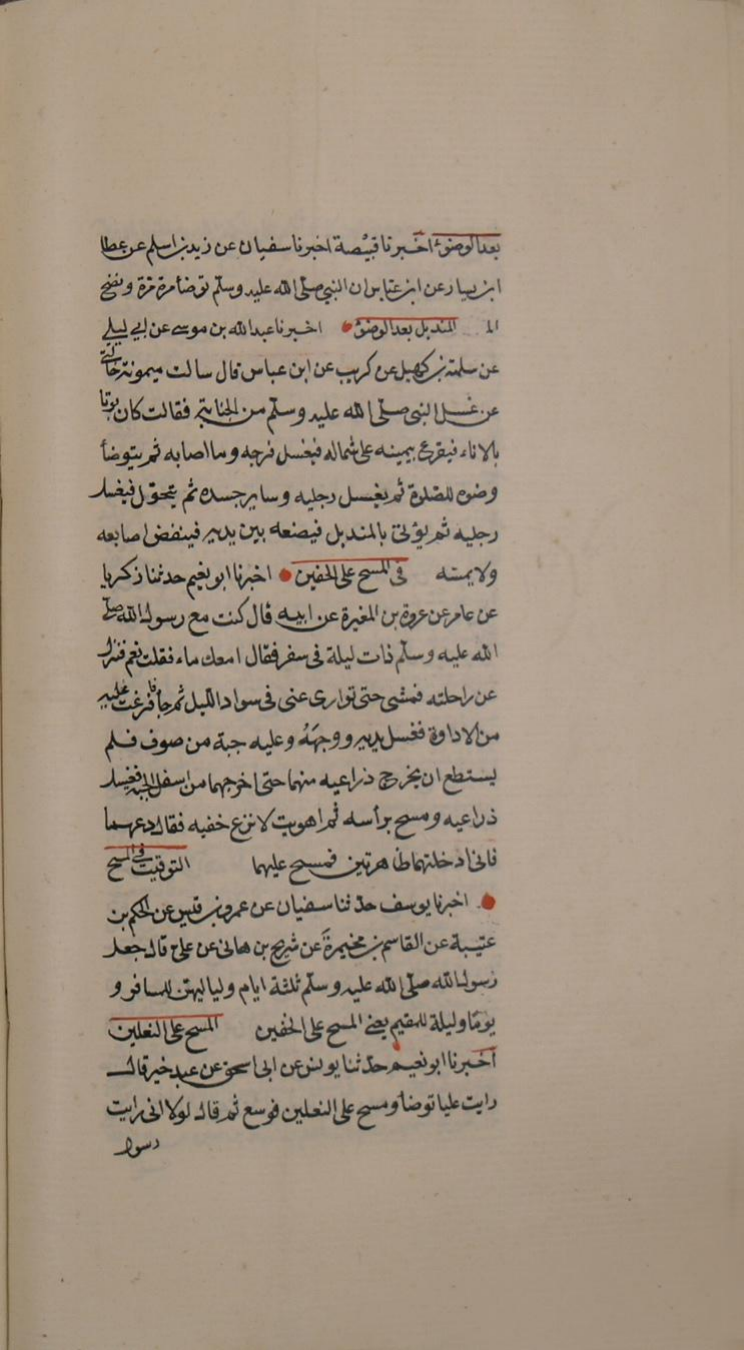 بعد الوضوء اخبرنا قبيصة اخبرنا سفيان عن زيد بن اسلم عن عطا
ابن يسار عن ابن عباس ان النبي صلى الله عليه وسلم توضأ مرة مرة ونضح
الما المنديل بعد الوضوء اخبرنا عبدالله بن موسى عن ابي ليلى
عن سلمة بن كهيل عن كريب عن ابن عباس قال سالت ميمونة خالتي
عن غسل النبي صلى الله عليه وسلم من الجنابة فقالت كان يوتا
بالاناء فيفرغ بيمينه على شماله فيغسل فرجه وما اصابه ثم يتوضأ
وضوه للصلوة ثم يغسل رجليه وساير جسده ثم يتحول فيغسل
رجليه ثم يؤتى بالمنديل فيضعه بين يديه فينفض اصابعه
ولا يمسه في المسح على الخفين اخبرنا ابو نعيم حدثنا زكريا
عن عامر عن عروة بن المغيرة عن ابيه قال كنت مع رسول الله صلى
الله عليه وسلم ذات ليلة فى سفر فقال امعك ماء فقلت نعم فنزل
عن راحلته فمشى حتى توارى عنى فى سواد الليل ثم جا فافرغت عليه
من الاداوة فغسل يديه ووجهه وعليه جبة من صوف فلم
يستطع ان يخرج ذراعيه منها حتى اخرجهما من اسفل الجبة فغسل
ذراعيه ومسح برأسه ثم اهويت لانزع خفيه فقال دعهما
فانى ادخلتهما طاهرتين فمسح عليهما التوقيت فى المسح
اخبرنا يوسف حدثنا سفيان عن عمرو بن قيس عن الحكم بن
عتيبة عن القاسم بن مخيمرة عن شريح بن هانى عن علي قال جعل
رسول الله صلى الله عليه وسلم ثلثة ايام ولياليهن للمسافر و
يوما وليلة للمقيم يعني المسح على الخفين المسح على النعلين
اخبرنا ابو نعيم حدثنا يونس عن ابى اسحق عن عبد خير قال
رايت عليا توضأ ومسح على النعلين فوسع ثم قال لولا انى رايت
رسول